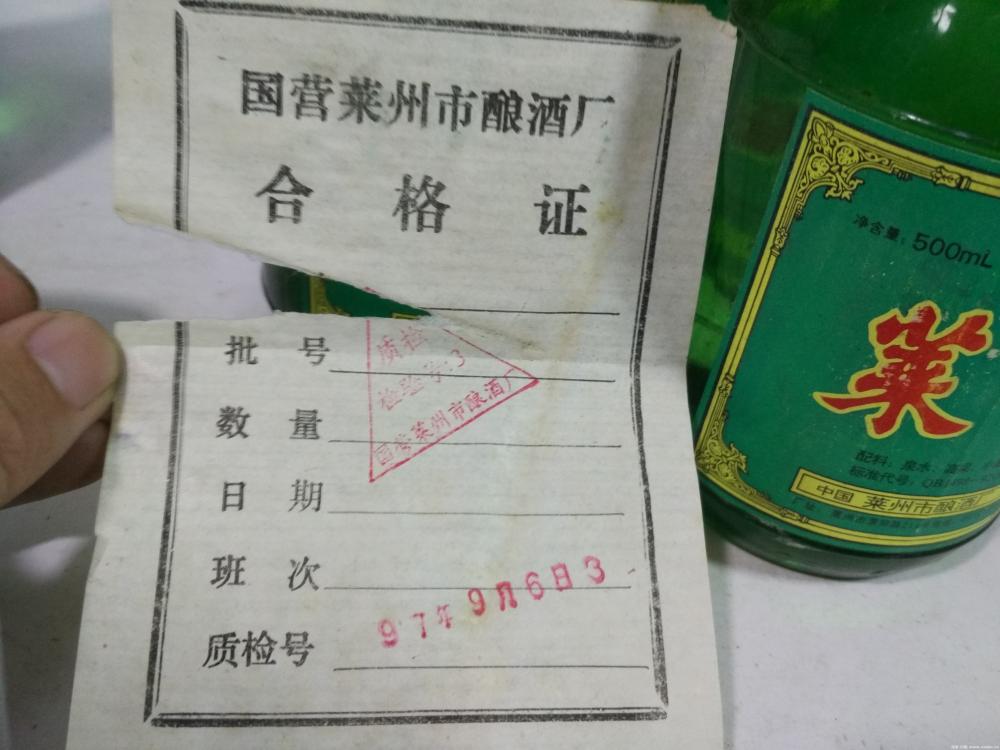 国营莱州市酿酒厂
合格证
批号
数量
日期
班次
质检号
质检
检验号:3
国营莱州市酿酒厂
97年9月6日3
净含量:500mL
莱
配料:泉水、高粱
标准代号:QB1498-
中国 莱州市酿酒